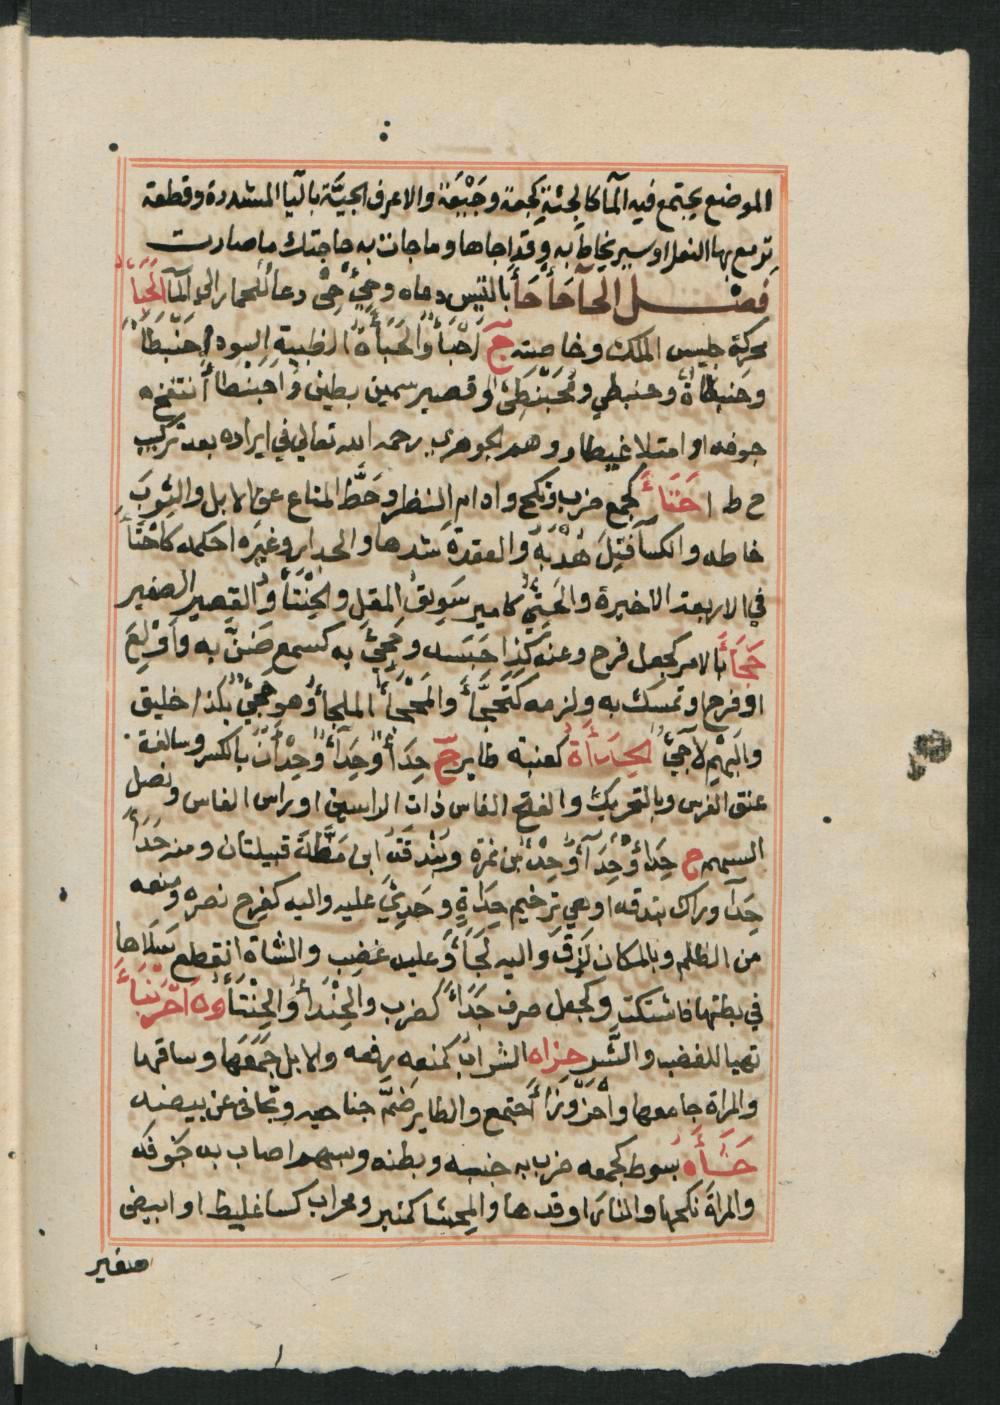 الموضع يجتمع فيه المآ كالجئة كجعة وجَيْعَة والاعرف الجيَّة باليا المشددة وقطعة
ترمع بها النعل او سير يخاط به وقد اجاها وما جات به حاجتك ما صارت
فصـــل الحآ حَأحَأ بالتيس دعاه وحِئْ حِئْ دعا للحمار الى المآ الحَبَأُ
محركة جليس الملك وخاصته ج اَحْبَاءٌ والحَبَأَةُ الظبية السودا حَبَنْطَأ
وحَنبطأة وحنبطي ومُحْبَنْطِئ لو قصير سمين بطين واحبنطأ انتفخ
جوفه او امتلا غيظا و وهم الجوهري رحمه الله تعالى في ايراده بعد تركيب
ح ط ا حَتَأَ كجمع ضرب ونكح وادام النظر وحَطَّ المتاع عن الابل والثوبَ
خاطه والكسآ فتل هُدْبَه والعقدة شدها والجدار وغيره احكمه كاحْتَأَ
في الاربعة الاخيرة والحَتِئُ كامير سَوِيق المقل والحِنْتَأْوُ القصير الصغير
حَجَأَ بالامر كجعل فرح وعنه كذا حَبَسَه وحَجِئَ به كسمع ضَنَّ به واُولِعَ
او فرح او تمسك به ولزمه كتَحَجَّأَ والمَحْجَأُ الملجأُ وهو حَجِئٌ بكذا خليق
واليهم لاجئ الحِدَأَةُ كعنبة طاير ج حِدَأٌ وحِدَآءٌ وحِدْآنٌ بالكسر وسالفة
عنق الفرس وبالتحريك والفتح الفاس ذات الراسين او راس الفاس ونصل
السهم ج حَدَأٌ وحِدَآءٌ وحِدْءُ بن نمرة وبُنْدُقَةُ ابن مَظَّةَ قبيلتان ومنه حَدَأَ
حِدَآ وراك بندقه او هي ترخيم حِدَاةٍ وحَدِئَ عليه واليه كفرح نصره ومنعه
من الظلم وبالمكان لَزِقَ واليه لَجَأَ وعليه غضب والشاة انقطع سَلاها
في بطنها فاشتكت وكجعل صرف حَدَأً كضرب والحِنْدَأْوُ والحِنْتَأْوُ اُحْرَنْبَأَ
تهيا للغضب والشَّر حزاه الشراب كمنعه رفعه والابل جَمَعَها وساقها
والمراة جامعها واحْزَوْزَأَ اجتمع والطاير ضمَّ جناحيه وتجافى عن بيضه
حَشَأَه بسوط كجمعه ضرب به جنبه وبطنه وسهم اصاب به جَوفَه
والمراةَ نكحها والنار اوقدها والمِحشا كمنبر ومحراب كسا غليظ او ابيض
صغير